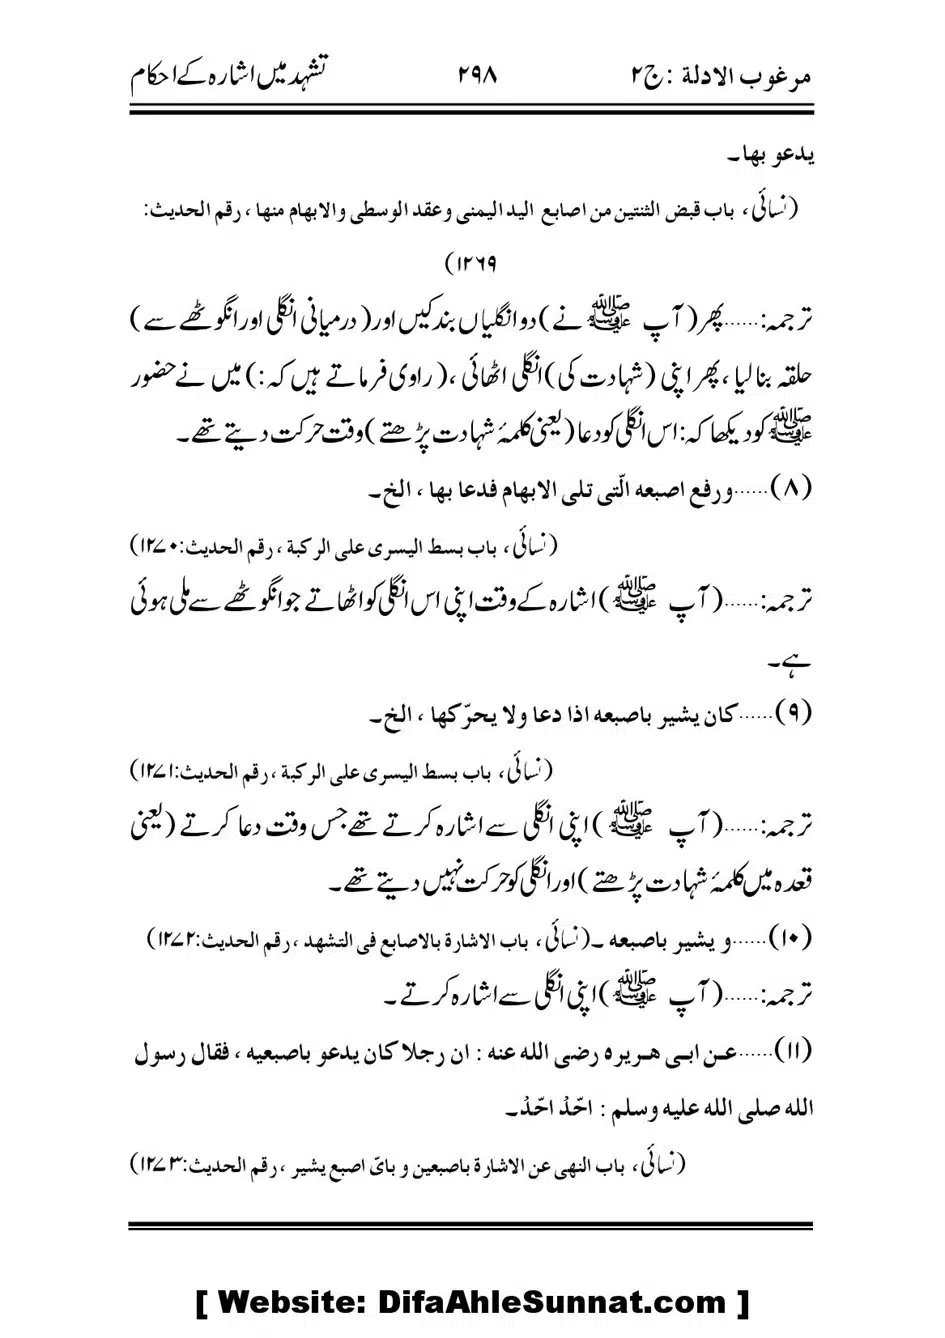 مرغوب الادلة : ج۲ ۲۹۸ تشہد میں اشارہ کے احکام
یدعو بها۔
(نسائی، باب قبض الثنتین من اصابع الید الیمنی وعقد الوسطی والابهام منها ، رقم الحدیث:
۱۲۶۹)
ترجمہ:......پھر (آپ ﷺ نے) دو انگلیاں بند کیں اور (درمیانی انگلی اور انگوٹھے سے)
حلقہ بنا لیا، پھر اپنی (شہادت کی) انگلی اٹھائی، (راوی فرماتے ہیں کہ:) میں نے حضور
ﷺ کو دیکھا کہ: اس انگلی کو دعا (یعنی کلمۂ شہادت پڑھتے) وقت حرکت دیتے تھے۔
(۸)......ورفع اصبعه الّتی تلی الابهام فدعا بها ، الخ۔
(نسائی، باب بسط الیسری علی الرکبة ، رقم الحدیث:۱۲۷۰)
ترجمہ:......(آپ ﷺ) اشارہ کے وقت اپنی اس انگلی کو اٹھاتے جو انگوٹھے سے ملی ہوئی
ہے۔
(۹)......کان یشیر باصبعه اذا دعا ولا یحرّکها ، الخ۔
(نسائی، باب بسط الیسری علی الرکبة ، رقم الحدیث:۱۲۷۱)
ترجمہ:......(آپ ﷺ) اپنی انگلی سے اشارہ کرتے تھے جس وقت دعا کرتے (یعنی
قعدہ میں کلمۂ شہادت پڑھتے) اور انگلی کو حرکت نہیں دیتے تھے۔
(۱۰)......و یشیر باصبعه ۔(نسائی، باب الاشارة بالاصابع فی التشهد ، رقم الحدیث:۱۲۷۲)
ترجمہ:......(آپ ﷺ) اپنی انگلی سے اشارہ کرتے۔
(۱۱)......عن ابی هریره رضی الله عنه : ان رجلا کان یدعو باصبعیه ، فقال رسول
الله صلی الله علیه وسلم : احّدْ احّدْ۔
(نسائی، باب النهی عن الاشارة باصبعین و بایّ اصبع یشیر ، رقم الحدیث:۱۲۷۳)
[ Website: DifaAhleSunnat.com ]